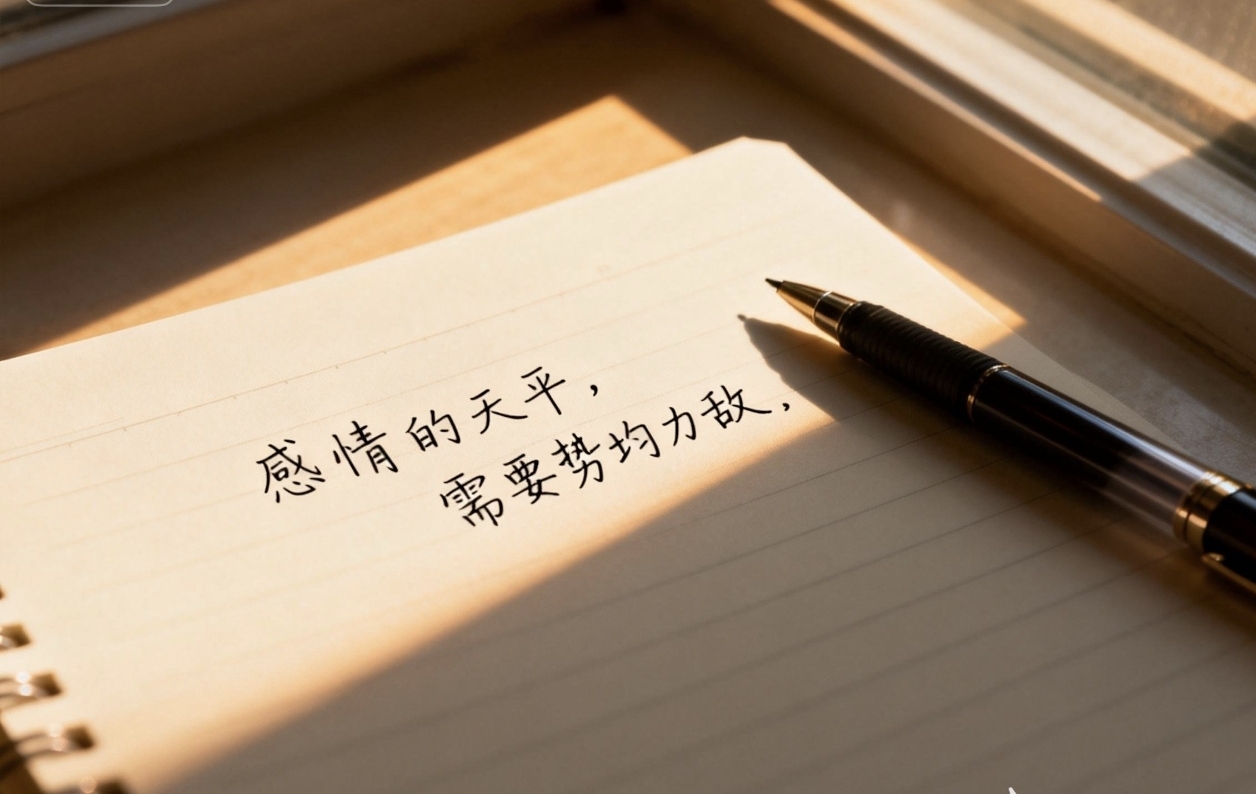 感情的天平，
需要势均力敌，